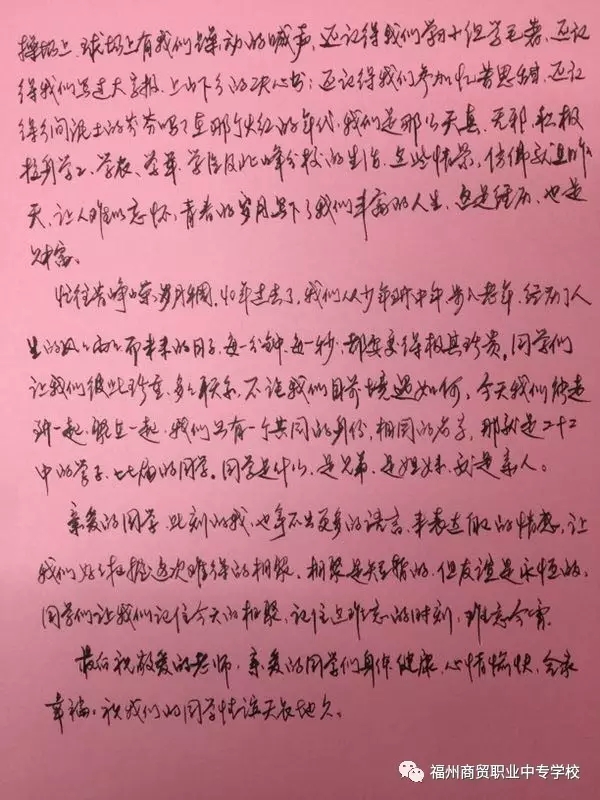 操场上、球场上有我们躁动的喊声，还记得我们学习小组学毛著，还记
得我们写过大字报、上山下乡的决心书；还记得我们参加忆苦思甜，还记
得乡间泥土的芬芳吗？在那个火红的年代，我们是那么天真、无邪、积极
投身学工、学农、学军、学军及北峰分校的生活，这些情景，仿佛就是昨
天，让人难以忘怀，青春的岁月写下了我们丰富的人生，这是经历，也是
财富。
忆往昔峥嵘岁月稠，40年过去了，我们从少年到中年步入老年，经历了人
生的风风雨雨，而未来的日子，每一分钟、每一秒，都要变得极其珍贵。同学们
让我们彼此珍重、多多联系，不论我们目前境遇如何，今天我们能走
到一起、聚在一起，我们只有一个共同的身份，相同的名字，那就是二十二
中的学子，七七届的同学。同学是什么，是兄弟，是姐妹，就是亲人。
亲爱的同学，此刻的我，也拿不出更多的语言，来表达自己的情感，让
我们好好把握这次难得的相聚，相聚是短暂的，但友谊是永恒的，
同学们让我们记住今天的相聚，记住这难忘的时刻，难忘今宵。
最后祝敬爱的老师，亲爱的同学们身体健康，心情愉快，全家
幸福。祝我们的同学情谊天长地久。
福州商贸职业中专学校